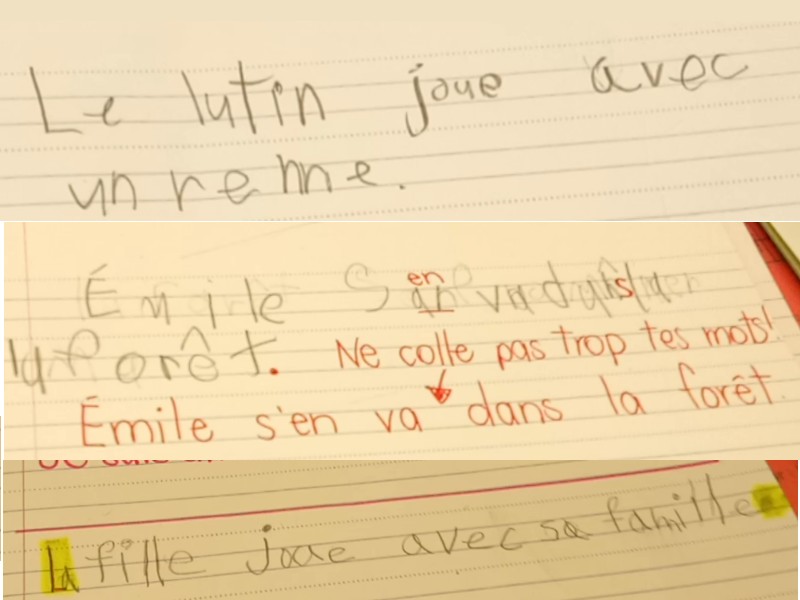 Le lutin joue avec
un renne.
Émile S en va dans
la forêt. Ne colle pas trop tes mots!
Émile s'en va dans la forêt.
la fille joue avec sa famille